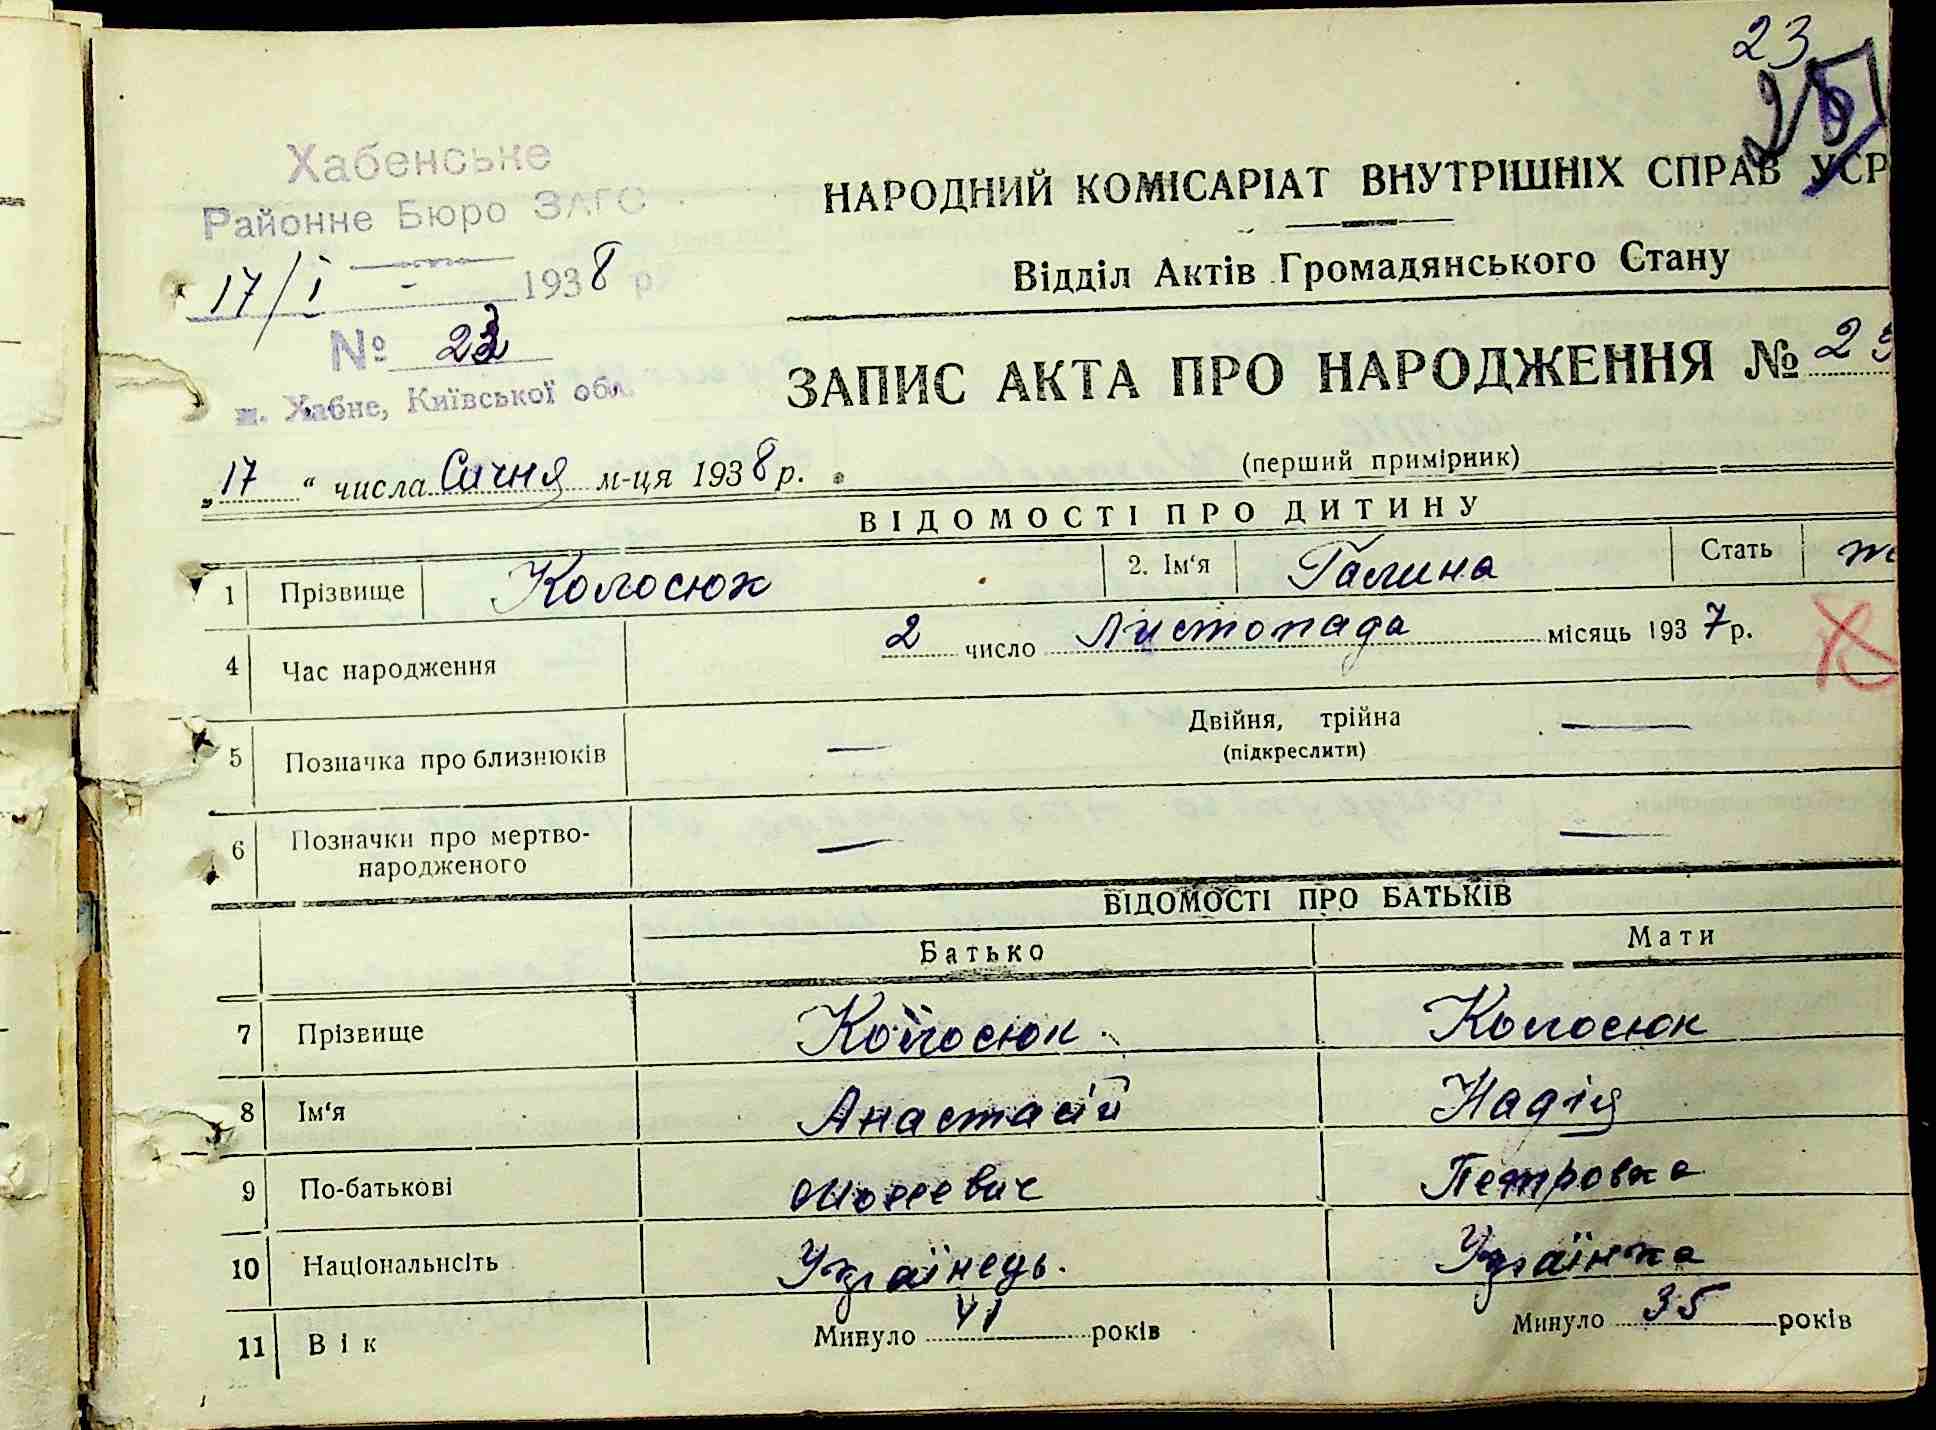 23
25
Хабенське
Районне Бюро ЗАГС
17/I 1938 р.
№ 23
м. Хабне, Київської обл.
НАРОДНИЙ КОМІСАРІАТ ВНУТРІШНІХ СПРАВ УСР
Відділ Актів Громадянського Стану
ЗАПИС АКТА ПРО НАРОДЖЕННЯ № 23
„17“ числа Січня м-ця 1938 р.
(перший примірник)
ВІДОМОСТІ ПРО ДИТИНУ
1 Прізвище Колосюк 2. Ім'я Галина Стать ж
4 Час народження 2 число Листопада місяць 1937 р.
5 Позначка про близнюків — Двійня, трійна —
(підкреслити)
6 Позначки про мертво-
народженого — —
ВІДОМОСТІ ПРО БАТЬКІВ
Батько Мати
7 Прізвище Колосюк Колосюк
8 Ім'я Анастасій Надія
9 По-батькові Петровна
10 Національнсіть Українець. Українка
11 Вік Минуло 41 років Минуло 35 років